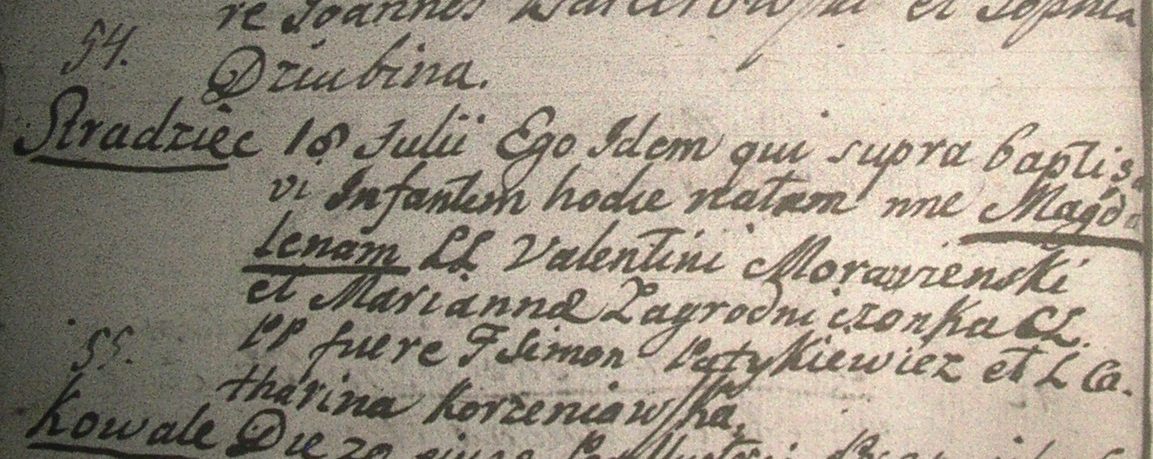 re Joannes et Sophia
54. Dziubina.
Stradziec 18 Julii Ego Idem qui supra baptisa
vi Infantem hodie natam nne Magda
lenam LL Valentini Morawienski
et Mariannæ Zagrodniczonka CL.
55. PP fuere F Simon Patykiewicz et L Ca.
tharina Korzeniowska,
Kowale Die 20